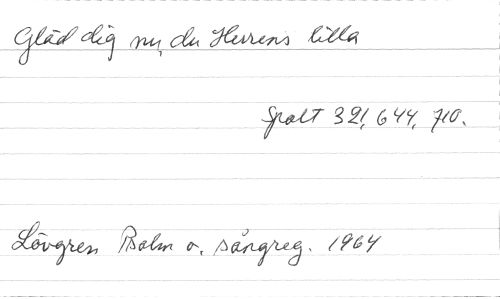 Gläd dig nu, du Herrens lilla
Spalt 321, 644, 710.
Lövgren Psalm o. sångreg. 1964